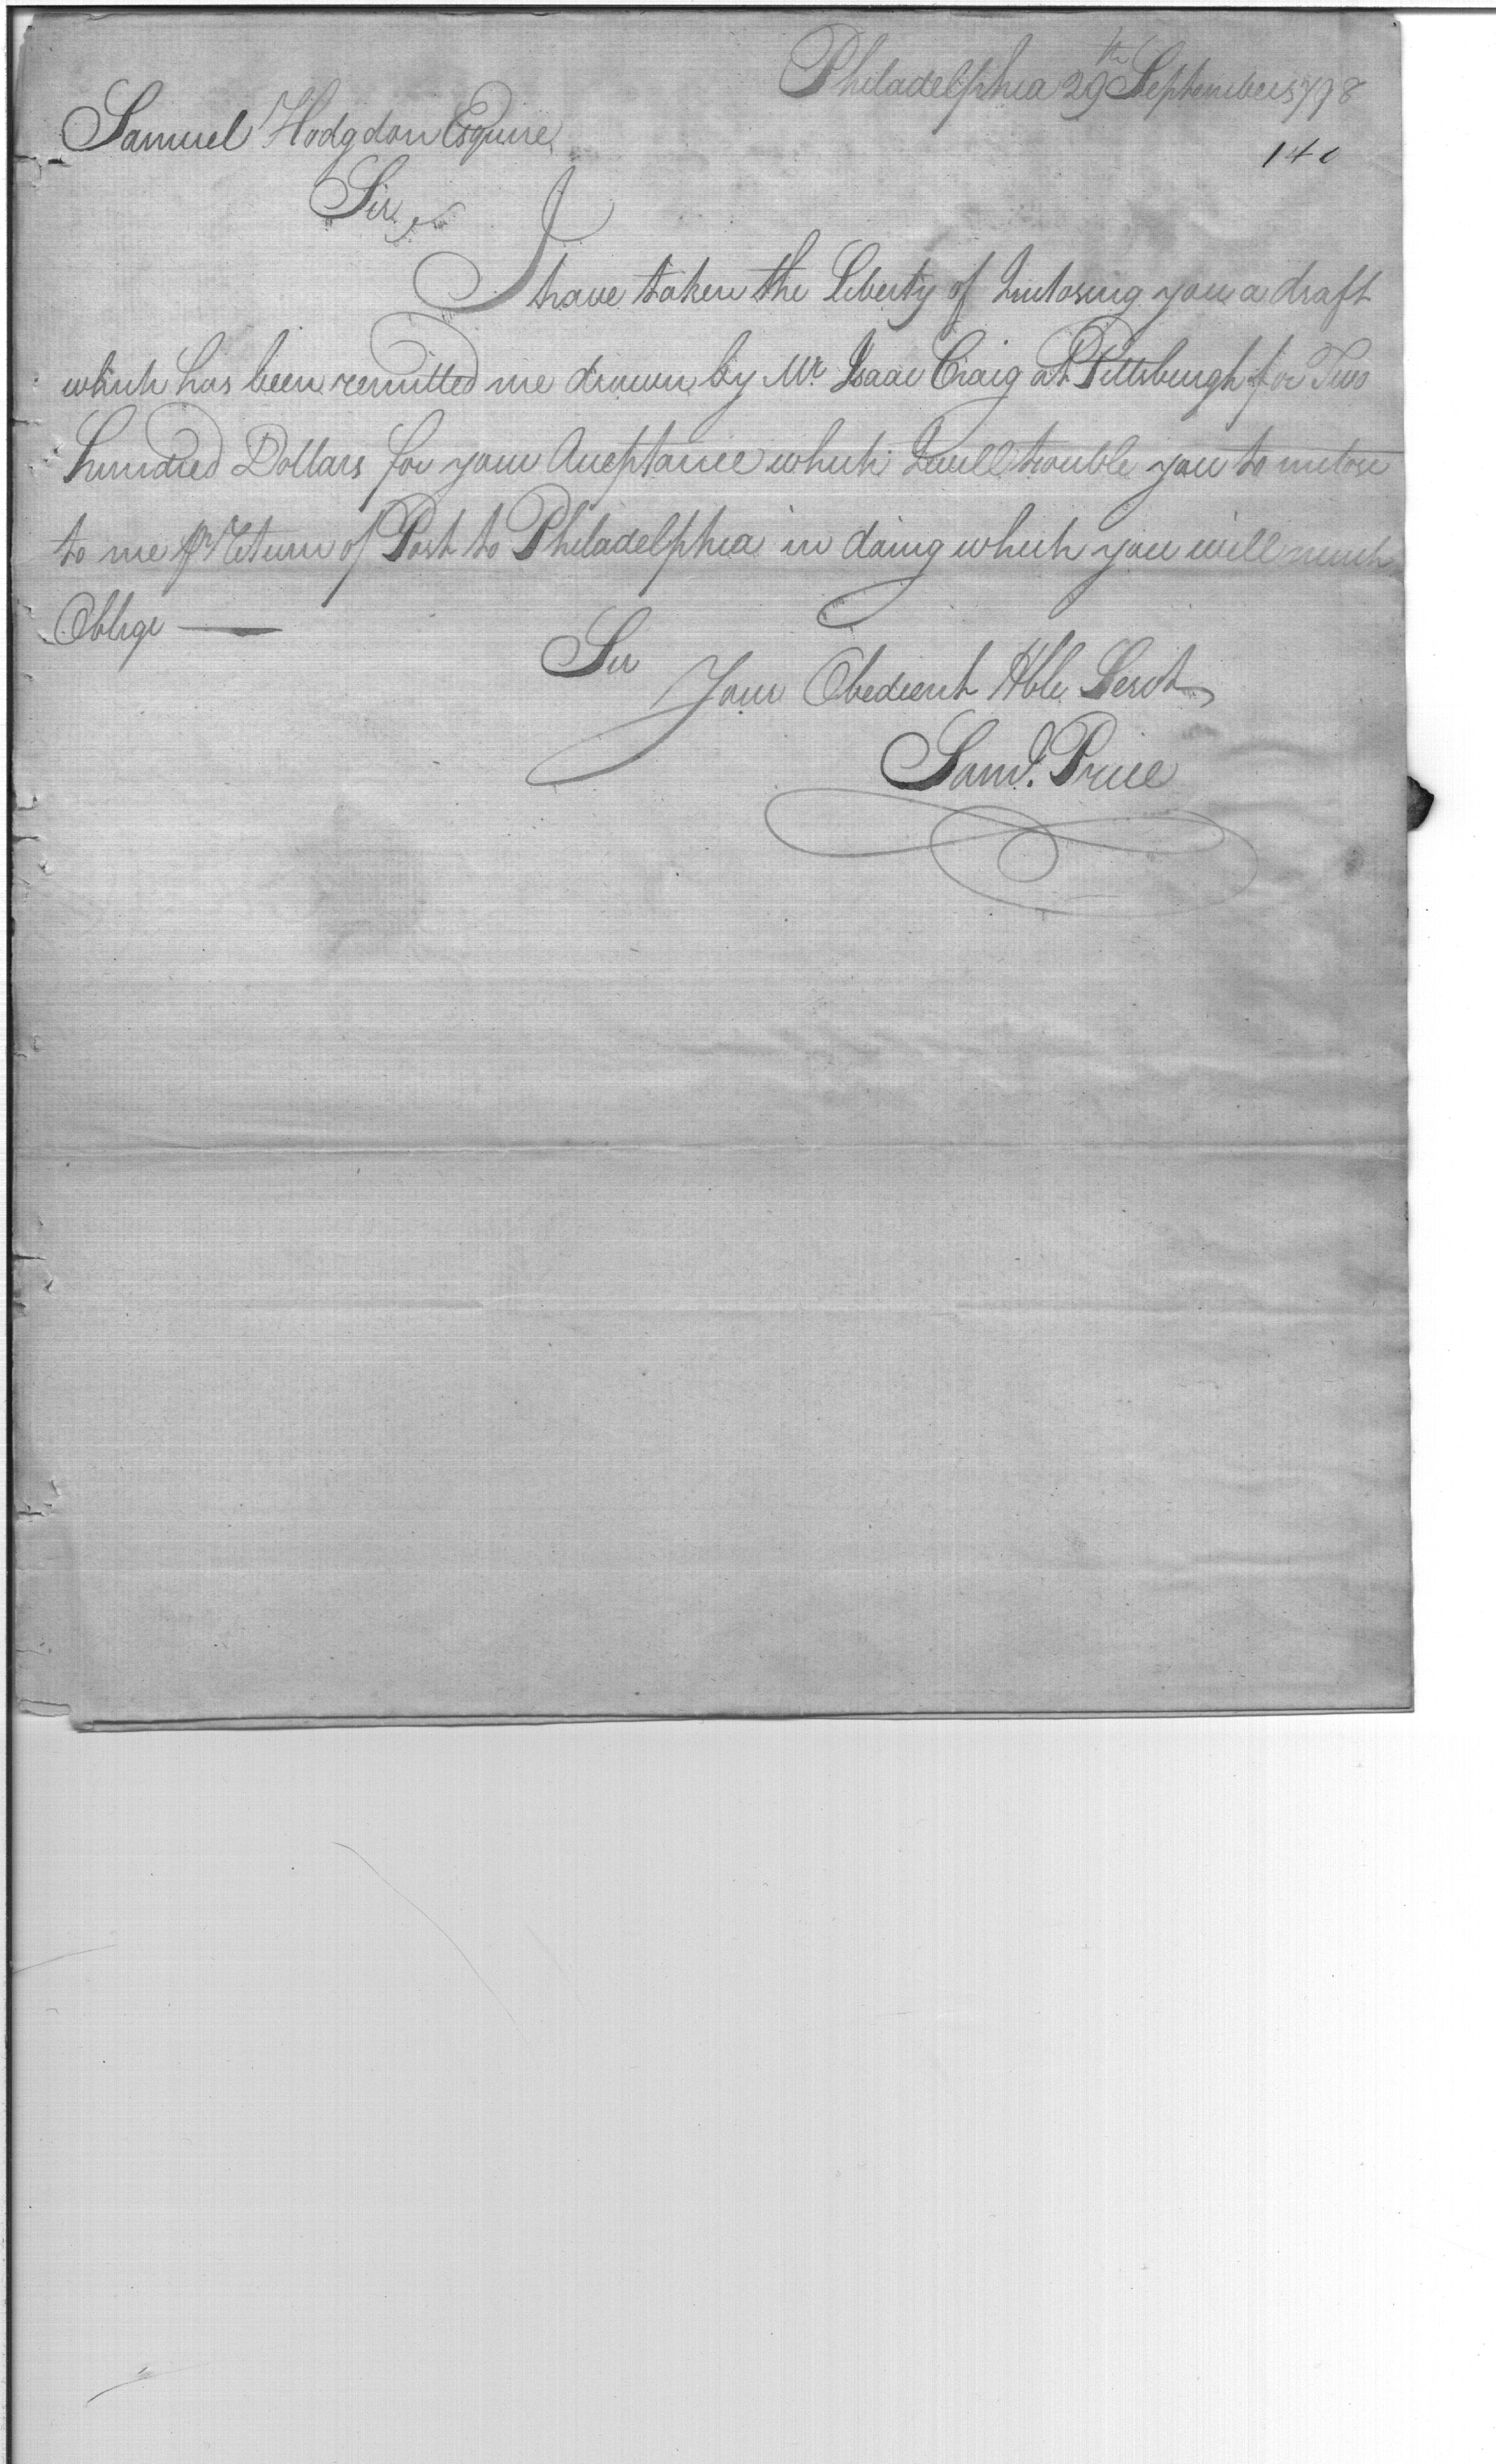 Philadelphia 29th September 1798
140
Samuel Hodgdon Esquire
Sir,
I have taken the Liberty of Inclosing you a draft
which has been remitted me drawn by Mr Isaac Craig at Pittsburgh for Two
hundred Dollars for your Acceptance which I will trouble you to inclose
to me pr Return of Post to Philadelphia in doing which you will much
Oblige —
Sir
Your Obedient Hble Servt
Saml. Price